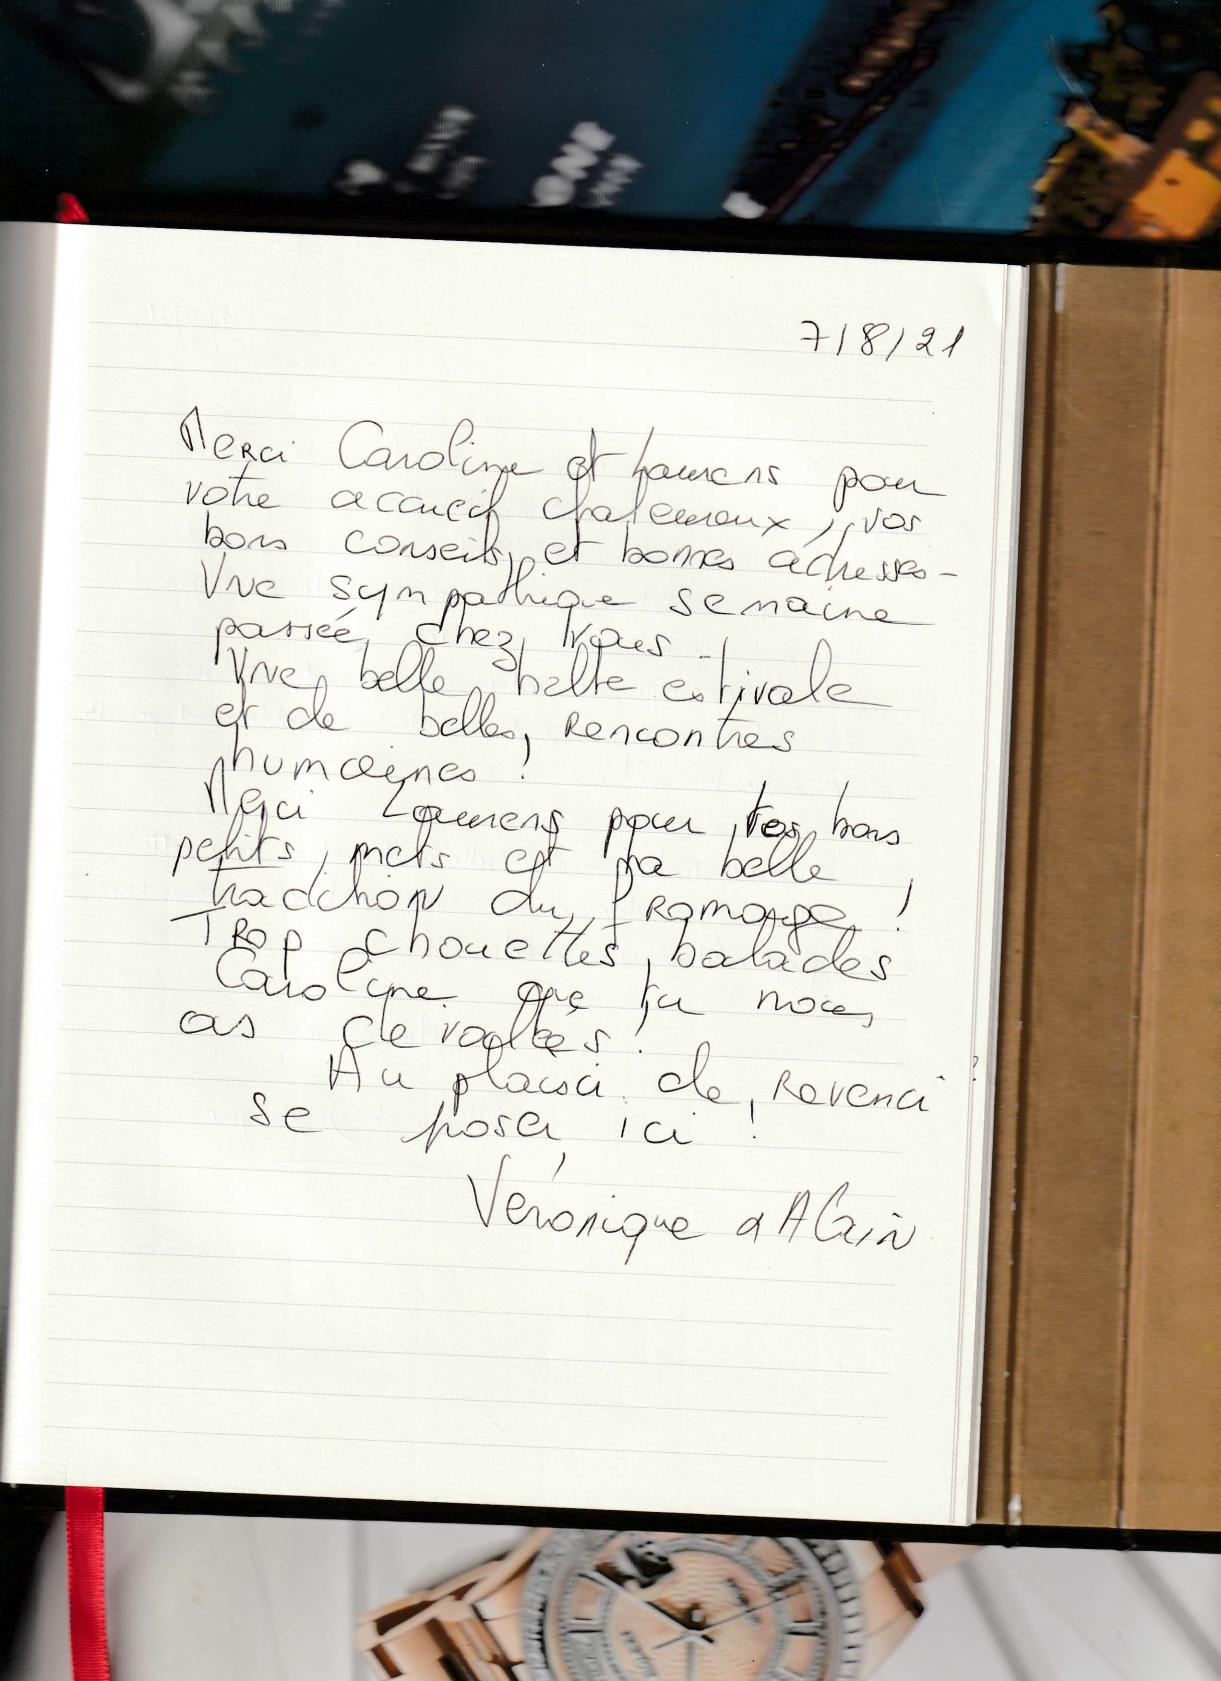 7/8/21
Merci Caroline et Laurens pour
votre accueil chaleureux, vos
bons conseils, et bonnes adresses -
Une sympathique semaine
passée chez vous -
Une belle halte estivale
et de belles rencontres
humaines !
Merci Laurens pour tes bons
petits mets et ta belle
tradition du fromage !
Trop chouettes balades
Caroline que tu nous
as dévoilées !
Au plaisir de revenir
se poser ici !
Véronique & Alain